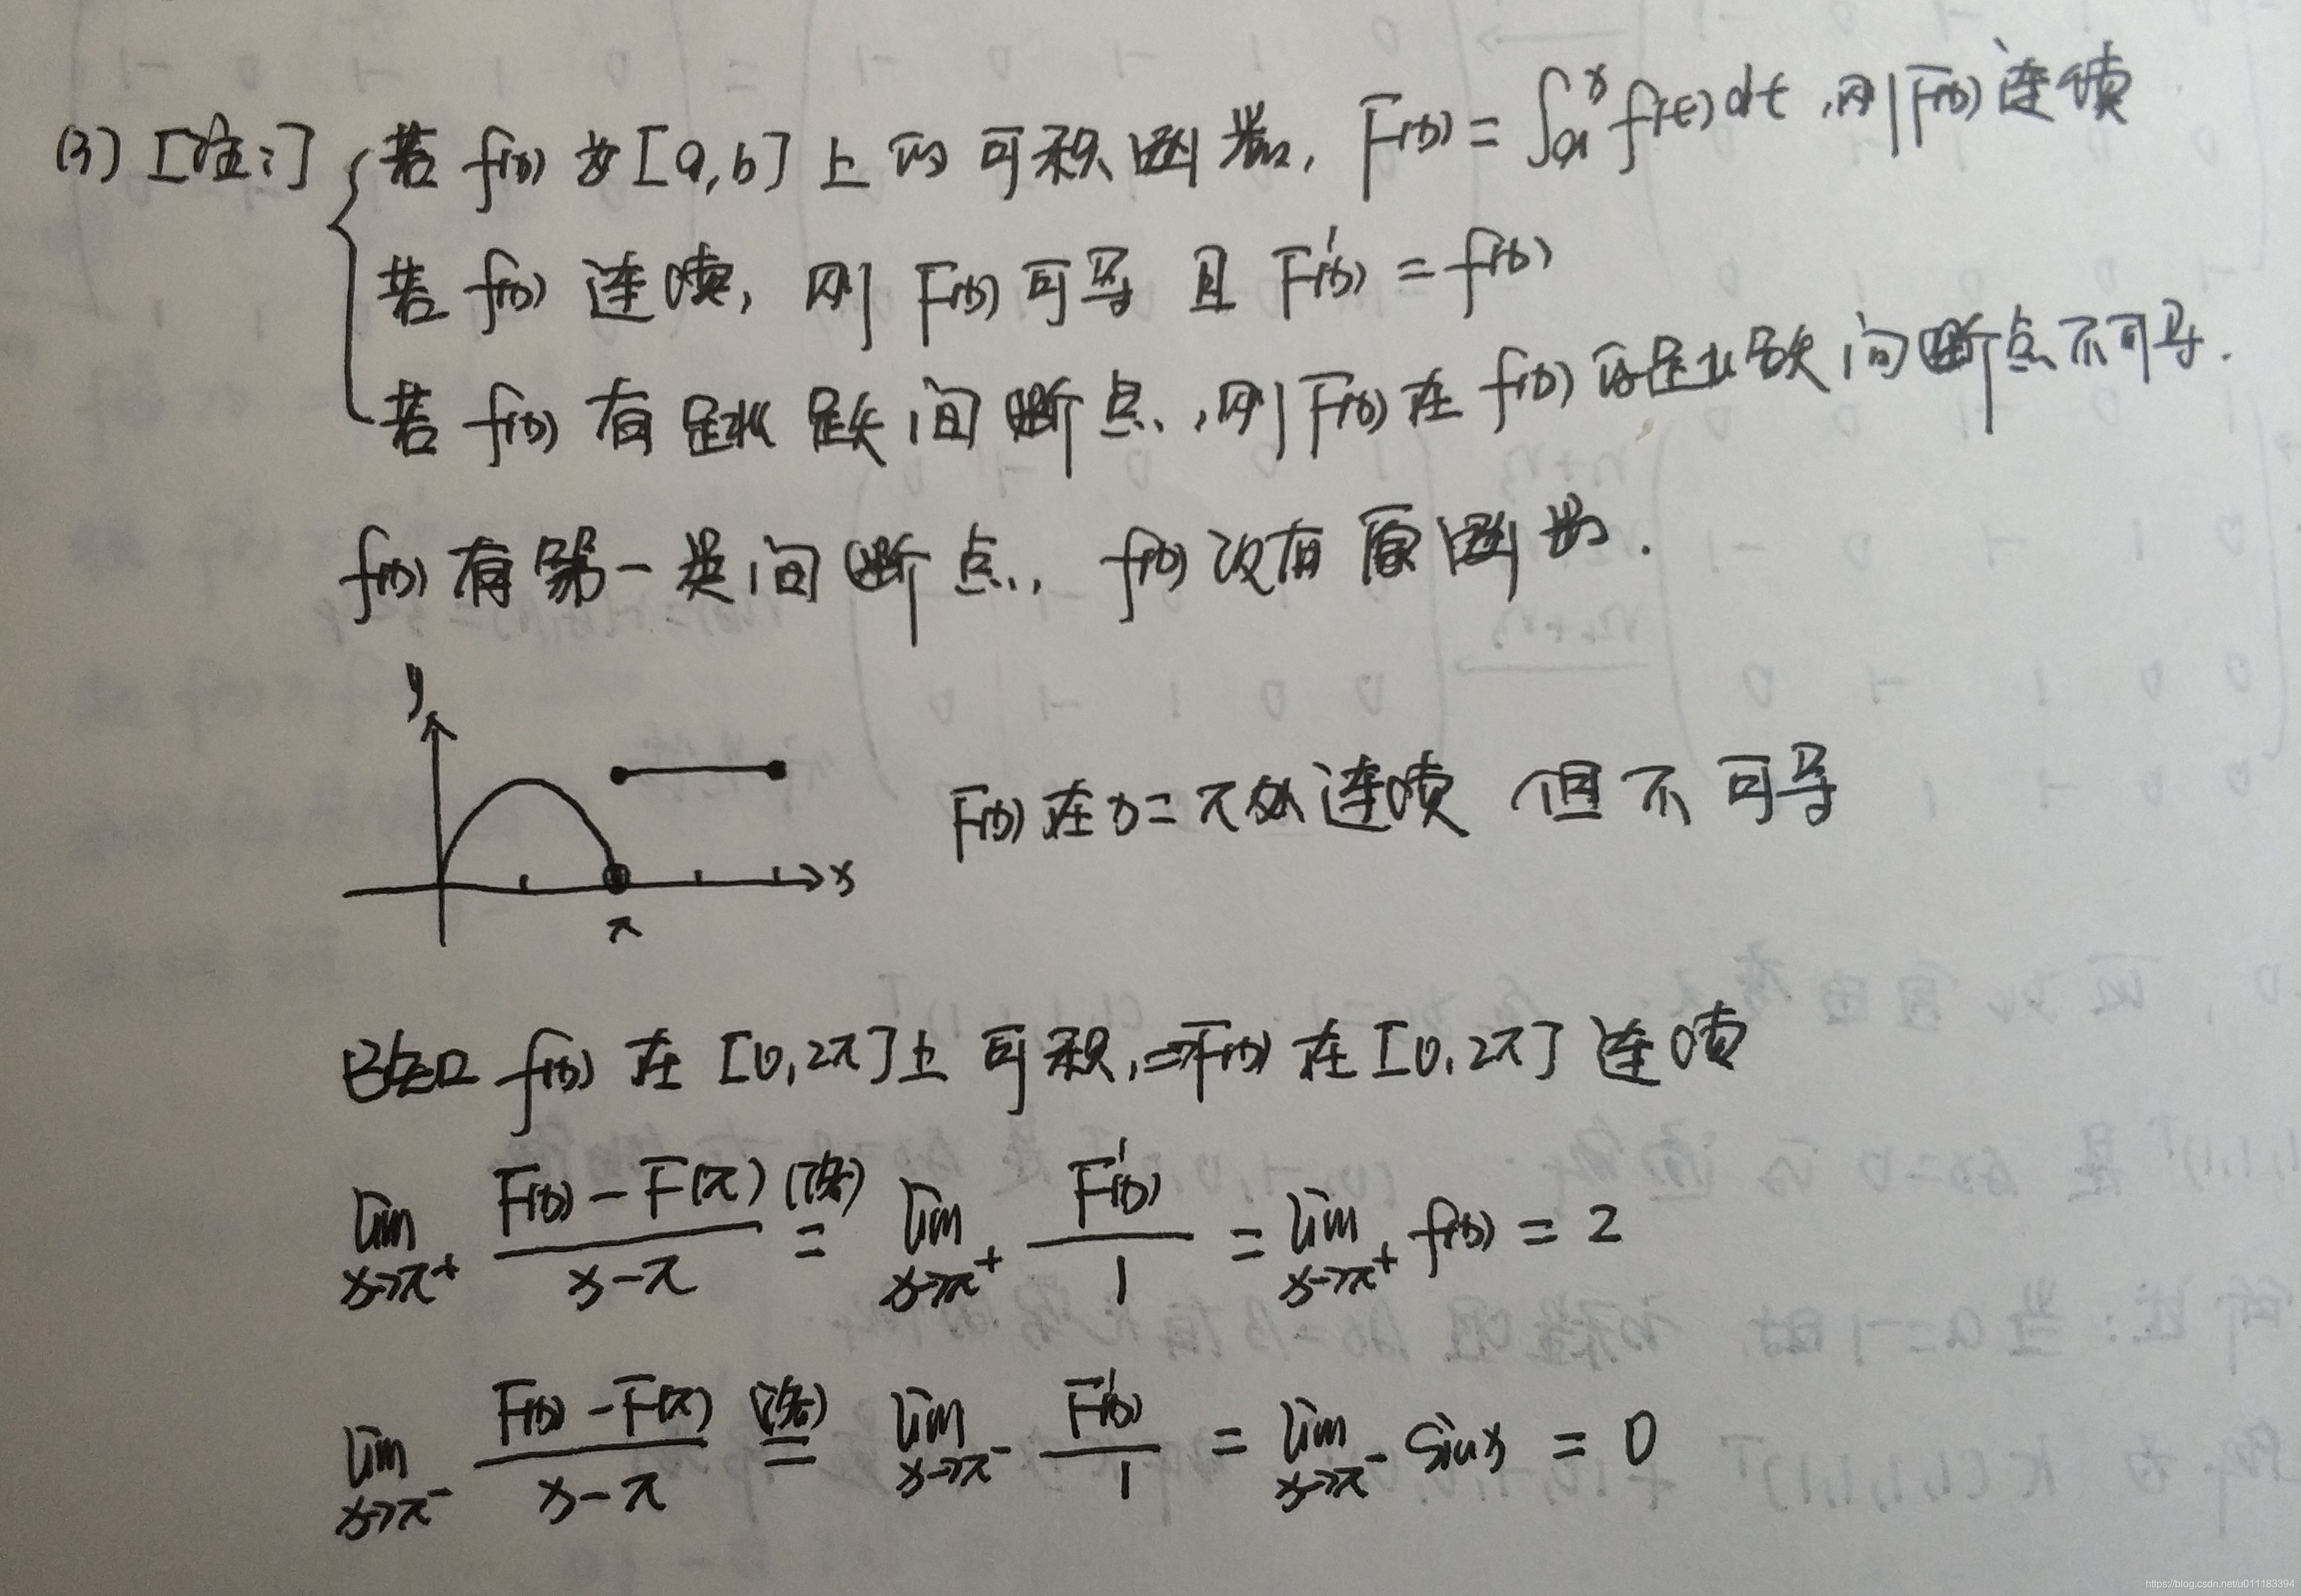 (3) [注:] 若 f(x) 为 [a,b] 上的可积函数, F(x) = ∫ₐˣ f(t) dt, 则 F(x) 连续
若 f(x) 连续, 则 F(x) 可导 且 F'(x) = f(x)
若 f(x) 有跳跃间断点, 则 F(x) 在 f(x) 的跳跃间断点不可导.
f(x) 有第一类间断点, f(x) 没有原函数.
y
F(x) 在 x = π 处 连续 但不可导
x
π
已知 f(x) 在 [0, 2π] 上可积, ⇒ F(x) 在 [0, 2π] 连续
lim x→π⁺ (F(x) − F(π))/(x − π) (洛)= lim x→π⁺ F'(x)/1 = lim x→π⁺ f(x) = 2
lim x→π⁻ (F(x) − F(π))/(x − π) (洛)= lim x→π⁻ F'(x)/1 = lim x→π⁻ sin x = 0
https://blog.csdn.net/u011183394